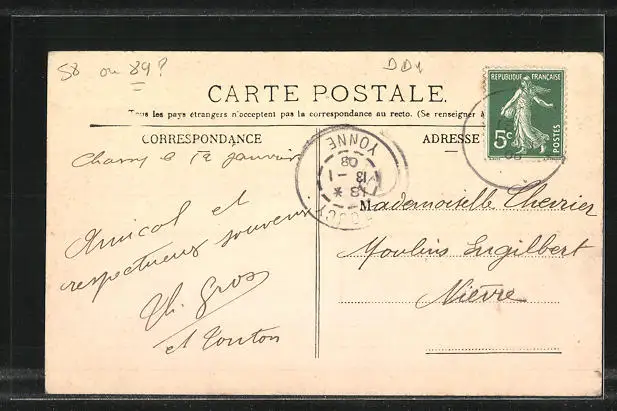 58 ou 89?
CARTE POSTALE.
Tous les pays étrangers n'acceptent pas la correspondance au recto. (Se renseigner à
CORRESPONDANCE
ADRESSE
REPUBLIQUE FRANÇAISE
5c
POSTES
YONNE
13 - 1
08
le 12 Janvier
Amical et
respectueux souvenir
Ch. Gros
et Tonton
Mademoiselle Chevrier
Moulins Engilbert
Nièvre